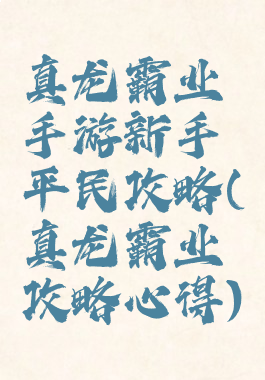 真龙霸业
手游新手
平民攻略(
真龙霸业
攻略心得)